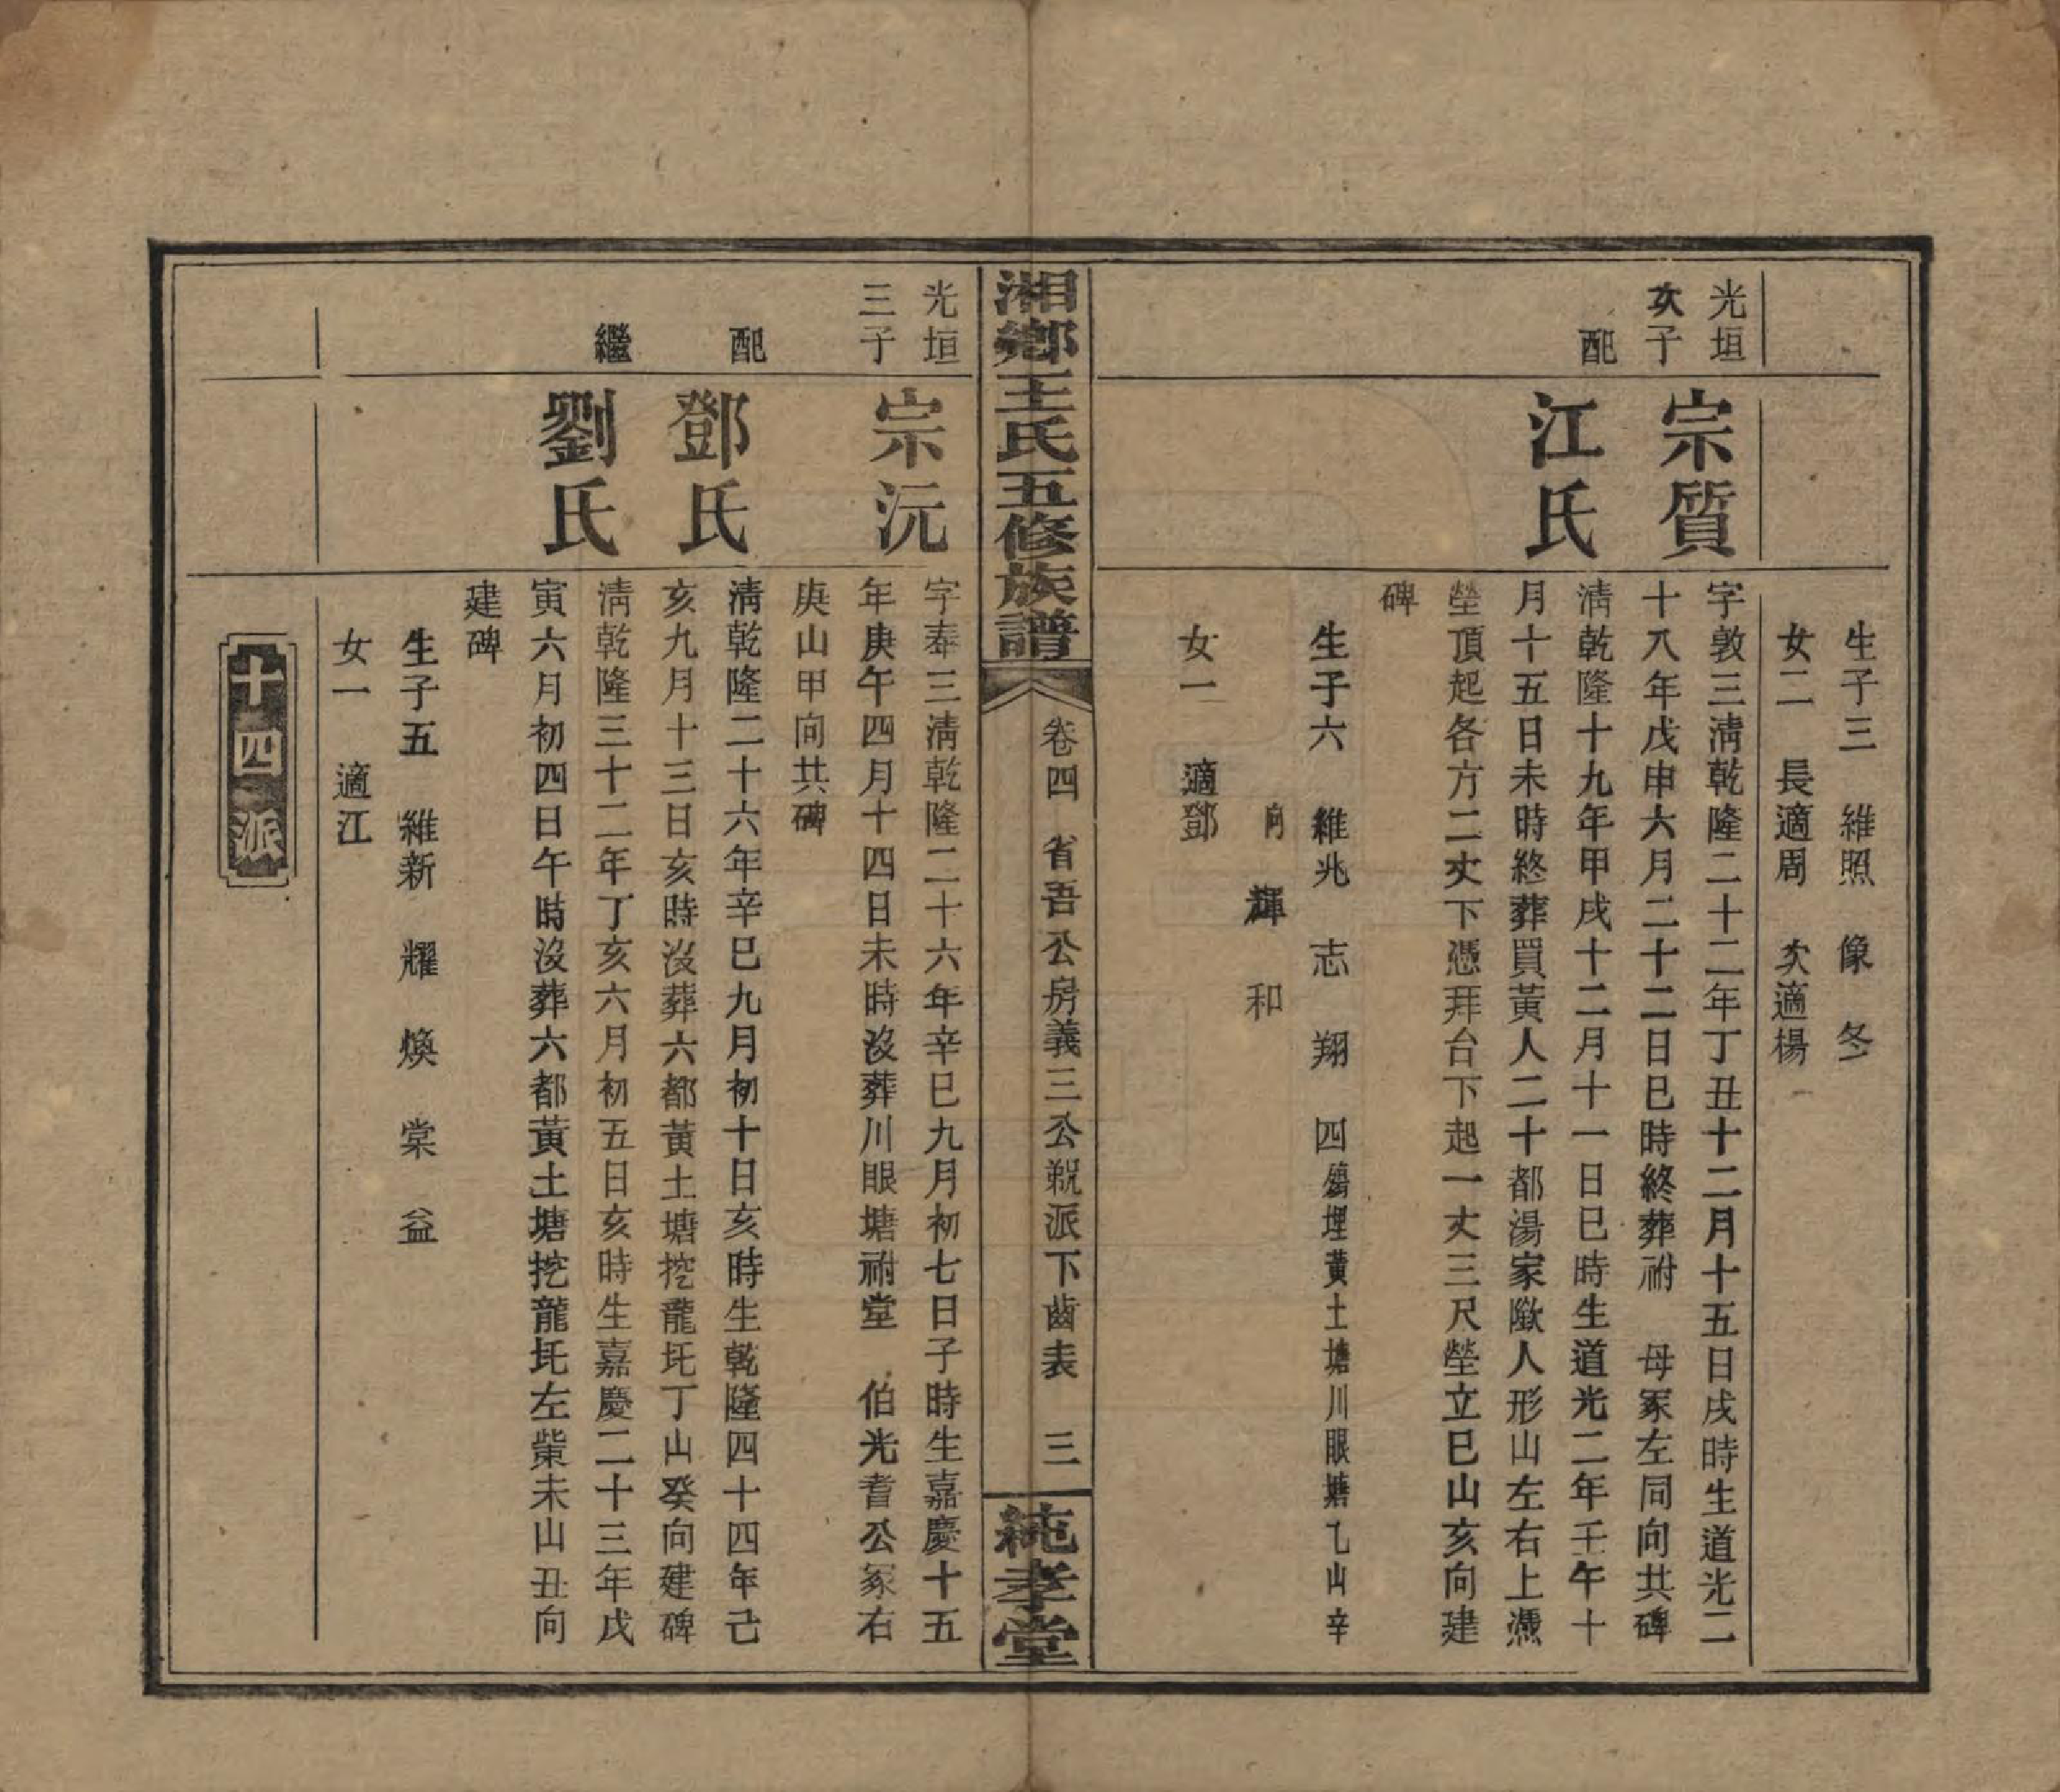 生子三　維照　像　冬
女二　長適周　次適楊
光垣
次子
宗質
字敦三淸乾隆二十二年丁丑十二月十五日戌時生道光二
十八年戊申六月二十二日巳時終葬祔　母冢左同向共碑
配
江氏
淸乾隆十九年甲戌十二月十一日巳時生道光二年壬午十
月十五日未時終葬買黃人二十都湯家陇人形山左右上憑
塋頂起各方二丈下憑拜台下起一丈三尺塋立巳山亥向建
碑
生子六　維兆　志　翔　四　殤埋黃土塘川眼塘乙山辛
向　輝　和
女一　適鄧
湘鄉王氏五修族譜
卷四　省吾公房義三公派下齒表　三
純孝堂
光垣
三子
宗沅
字奉三淸乾隆二十六年辛巳九月初七日子時生嘉慶十五
年庚午四月十四日未時沒葬川眼塘祔堂　伯光耆公冢右
庚山甲向共碑
配
鄧氏
淸乾隆二十六年辛巳九月初十日亥時生乾隆四十四年己
亥九月十三日亥時沒葬六都黃土塘挖龍坵丁山癸向建碑
繼
劉氏
淸乾隆三十二年丁亥六月初五日亥時生嘉慶二十三年戊
寅六月初四日午時沒葬六都黃土塘挖龍坵左塋未山丑向
建碑
生子五　維新　耀　煥　棠　益
女一　適江
十四派